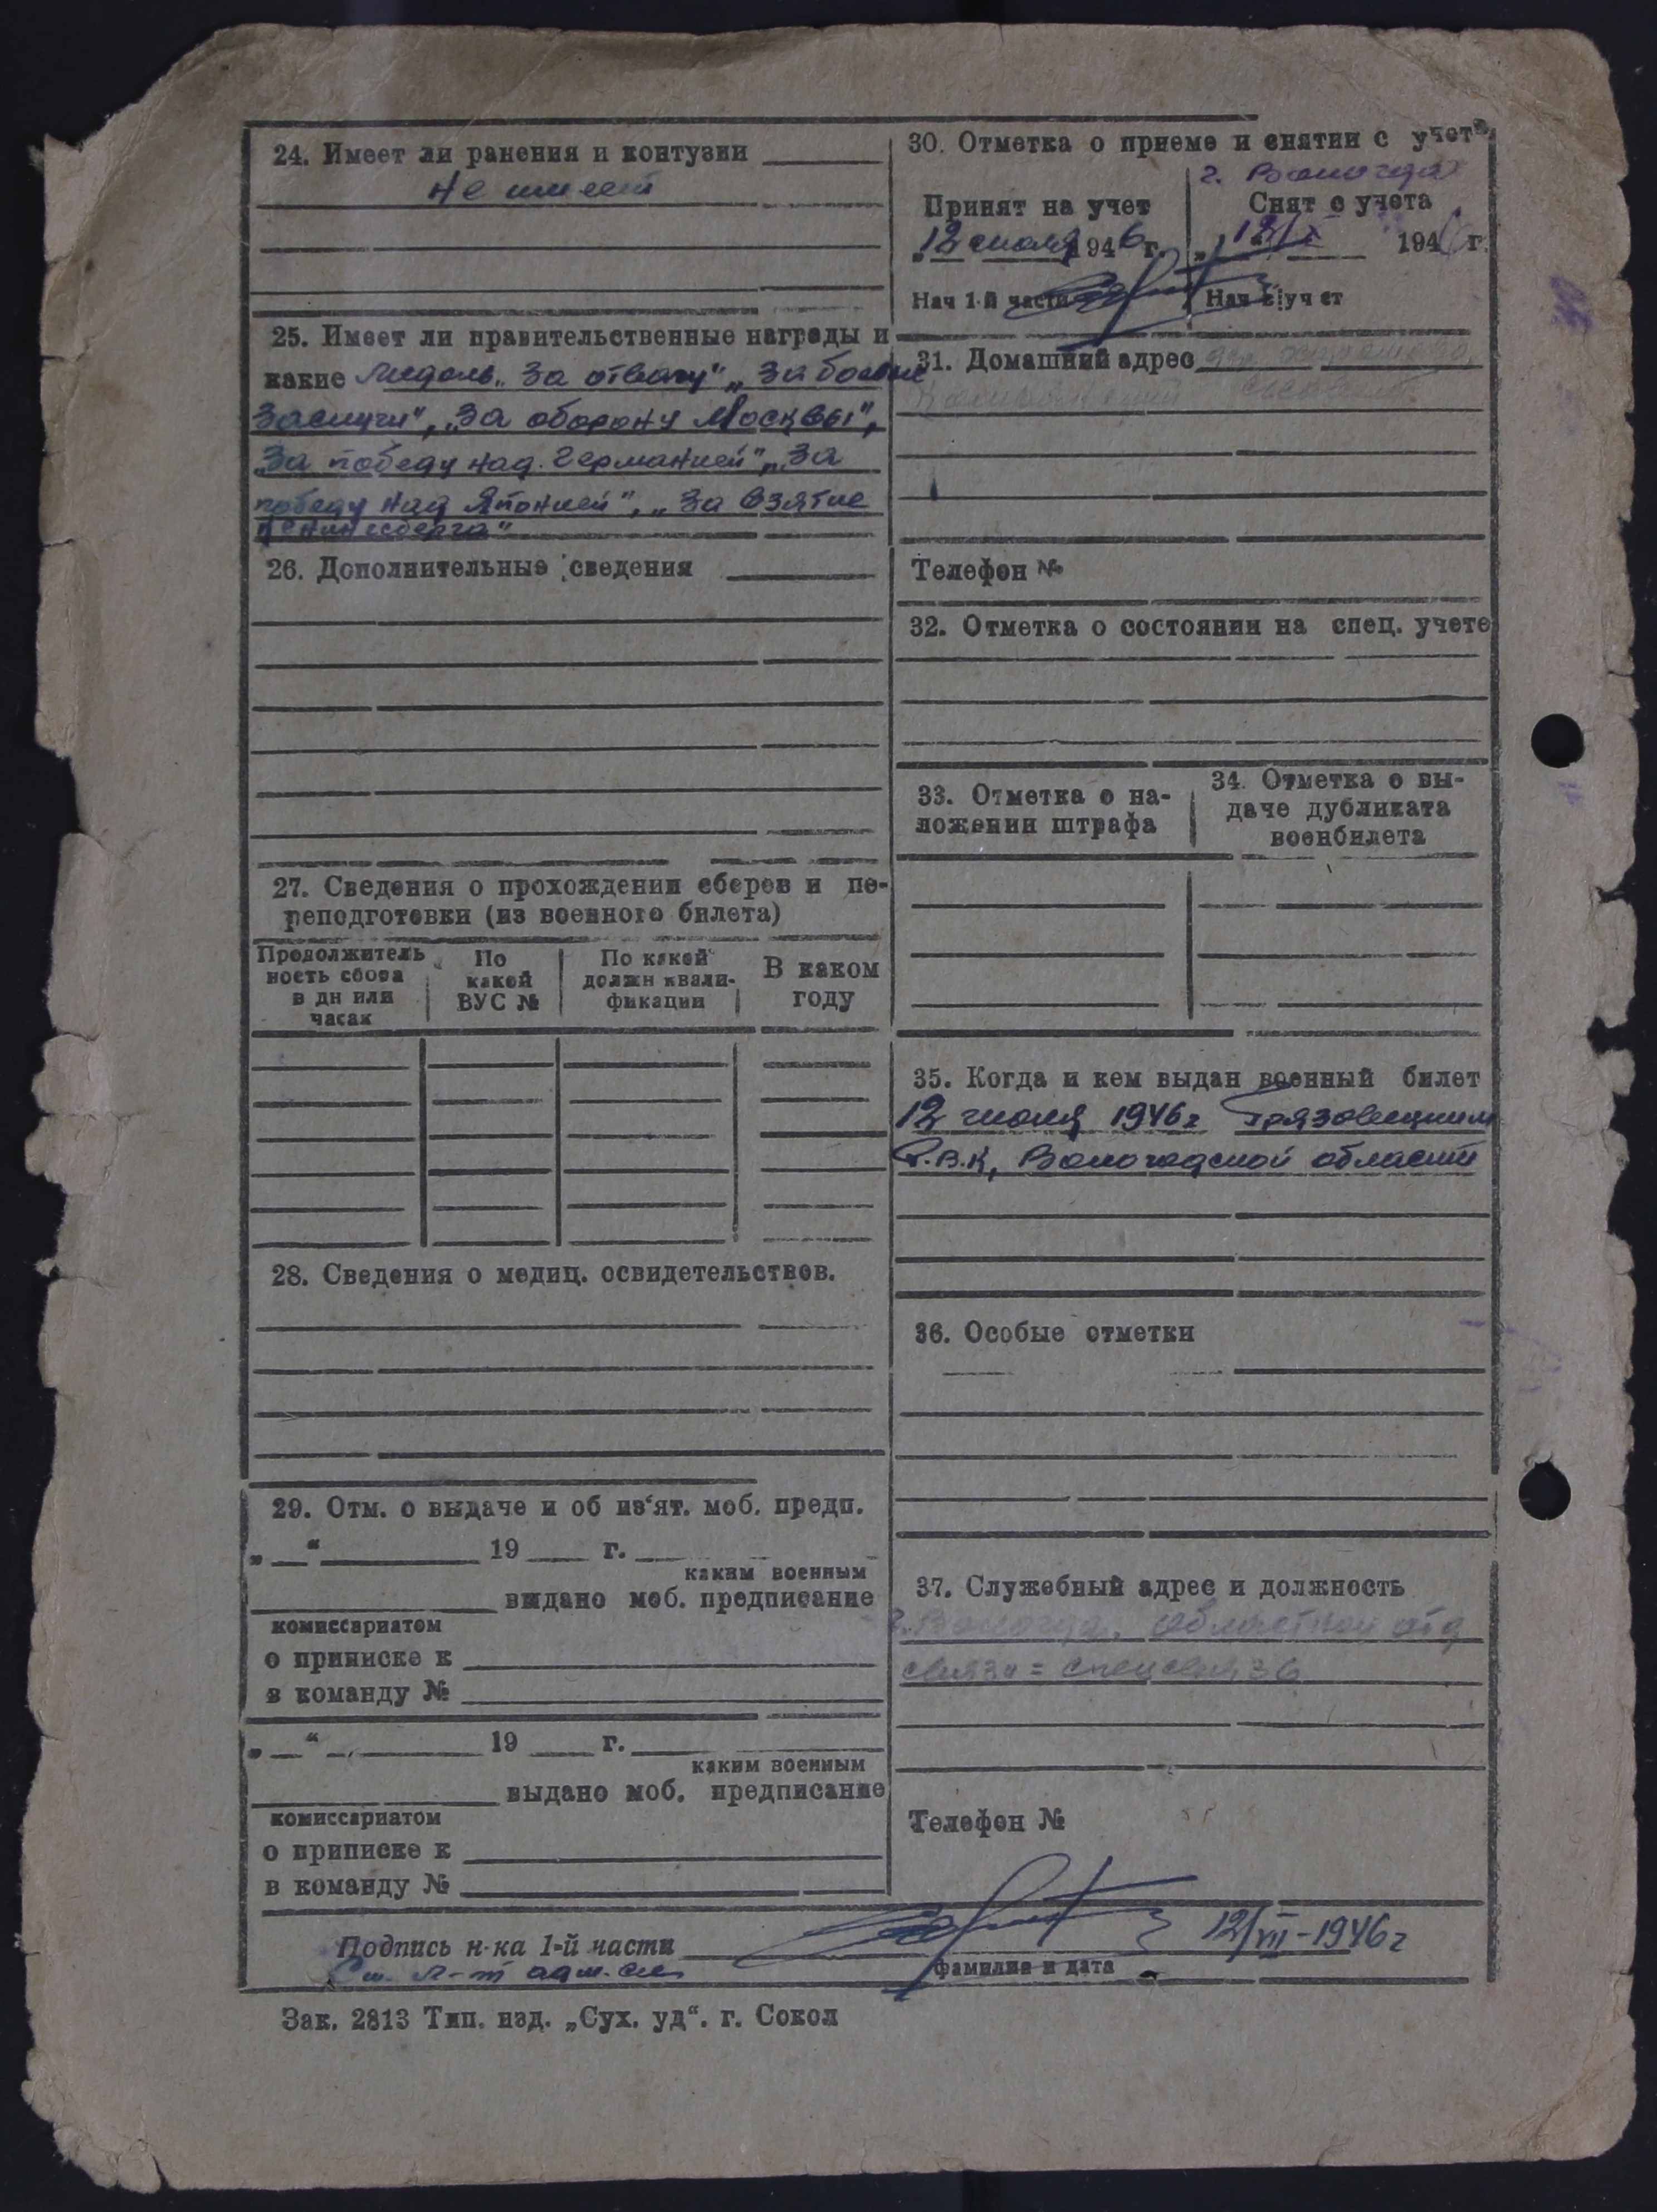 24. Имеет ли ранения и контузии
не имеет
25. Имеет ли правительственные награды и
какие Медаль „За отвагу" „За боевые
заслуги", „За оборону Москвы",
„За победу над Германией" „За
победу над Японией", „За взятие
Кенигсберга"
26. Дополнительные сведения
27. Сведения о прохождении сборов и пе-
реподготовки (из военного билета)
Продолжитель ность сбора в дн или часах
По какой ВУС №
По какой должн квали- фикации
В каком году
28. Сведения о медиц. освидетельствов.
29. Отм. о выдаче и об из‘ят. моб. предп.
„ “ 19 г.
каким военным
выдано моб. предписание
комиссариатом
о приписке к
в команду №
„ “ 19 г.
каким военным
выдано моб. предписание
комиссариатом
о приписке к
в команду №
30. Отметка о приеме и снятии с учета
г. Вологда
Принят на учет
Снят с учета
„12 июля 1946 г.
„12/X 1946 г.
Нач 1-й части
Нач учет
31. Домашний адрес
Телефон №
32. Отметка о состоянии на спец. учете
33. Отметка о на-
ложении штрафа
34. Отметка о вы-
даче дубликата
военбилета
35. Когда и кем выдан военный билет
12 июля 1946 г Грязовецким
Р.В.К, Вологодской области
36. Особые отметки
37. Служебный адрес и должность
г. Вологда. Областной отд
связи = спецсвязь
Телефон №
Подпись н-ка 1-й части
12/VII-1946 г
Ст. л-т адм. сл.
фамилия и дата
Зак. 2813 Тип. изд. „Сух. уд“. г. Сокол